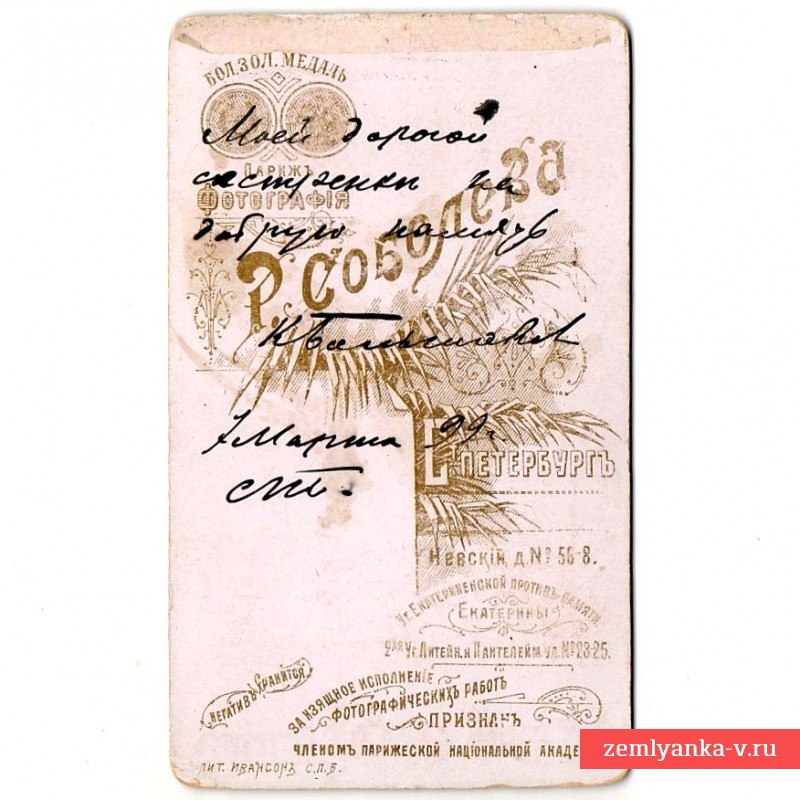 БОЛ. ЗОЛ. МЕДАЛЬ
Моей дорогой
ПАРИЖЪ
сестренкѣ на
ФОТОГРАФІЯ
добрую память
Р. СОБОЛЕВА
7 Марта 99 г.
С-ПЕТЕРБУРГЪ
СПб.
НЕВСКІЙ, Д. № 56-8.
УГ. ЕКАТЕРИНЕНСКОЙ ПРОТИВЪ ПАМЯТН.
ЕКАТЕРИНЫ
2АЯ УГ. ЛИТЕЙН. и ПАНТЕЛЕЙМ. УЛ. № 23-25.
НЕГАТИВЪ ХРАНИТСЯ
ЗА ИЗЯЩНОЕ ИСПОЛНЕНІЕ
ФОТОГРАФИЧЕСКИХЪ РАБОТЪ
ПРИЗНАНЪ
ЧЛЕНОМЪ ПАРИЖЕСКОЙ НАЦІОНАЛЬНОЙ АКАДЕ
ЛИТ. ИВАНСОНЪ С.П.Б.
zemlyanka-v.ru